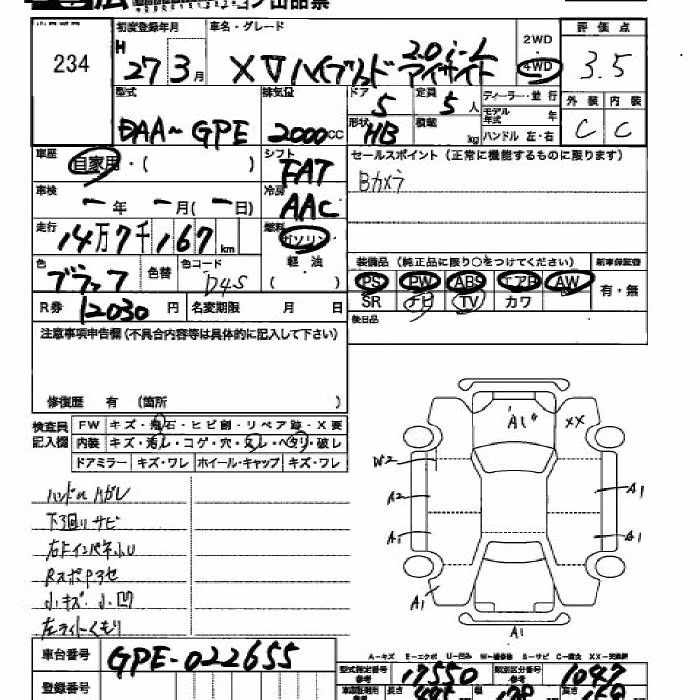 出品票
234
初度登録年月
H 27 3月
車名・グレード
XV ハイブリッド 2.0i-L アイサイト
2WD
4WD
評価点
3.5
外装 内装
C C
型式
DAA~GPE
排気量
2000cc
ドア
5
定員
5人
形状
HB
積載 kg
ディーラー・並行
モデル年式 年
ハンドル 左・右
車歴
自家用・( )
シフト
FAT
セールスポイント(正常に機能するものに限ります)
Bカメラ
車検
ー年 ー月(ー日)
冷房
AAC
走行
14万7千167km
燃料
ガソリン
軽・油
( )
色
ブラック
色替
色コード
D4S
装備品(純正品に限り○をつけてください)
新車保証書
PS PW ABS エアB AW
有・無
SR ナビ TV カワ
後日品
R券 12030円
名変期限 月 日
注意事項申告欄(不具合内容等は具体的に記入して下さい)
修復歴 有 (箇所 )
検査員記入欄
FW キズ・飛石・ヒビ割・リペア跡・X要
内装 キズ・汚レ・コゲ・穴・スレ・ヘタリ・破レ
ドアミラー キズ・ワレ ホイール・キャップ キズ・ワレ
ハンドルハガレ
下回リサビ
小キズ・小凹
左ライトくもり
A1
XX
W2
A2
A1
A1
A1
A1
A1
A-キズ E-エクボ U-凹み W-補修跡 S-サビ C-腐食 XX-交換済
車台番号
GPE-022655
型式指定番号
17550
類別区分番号
1047
登録番号
長さ
幅
高さ